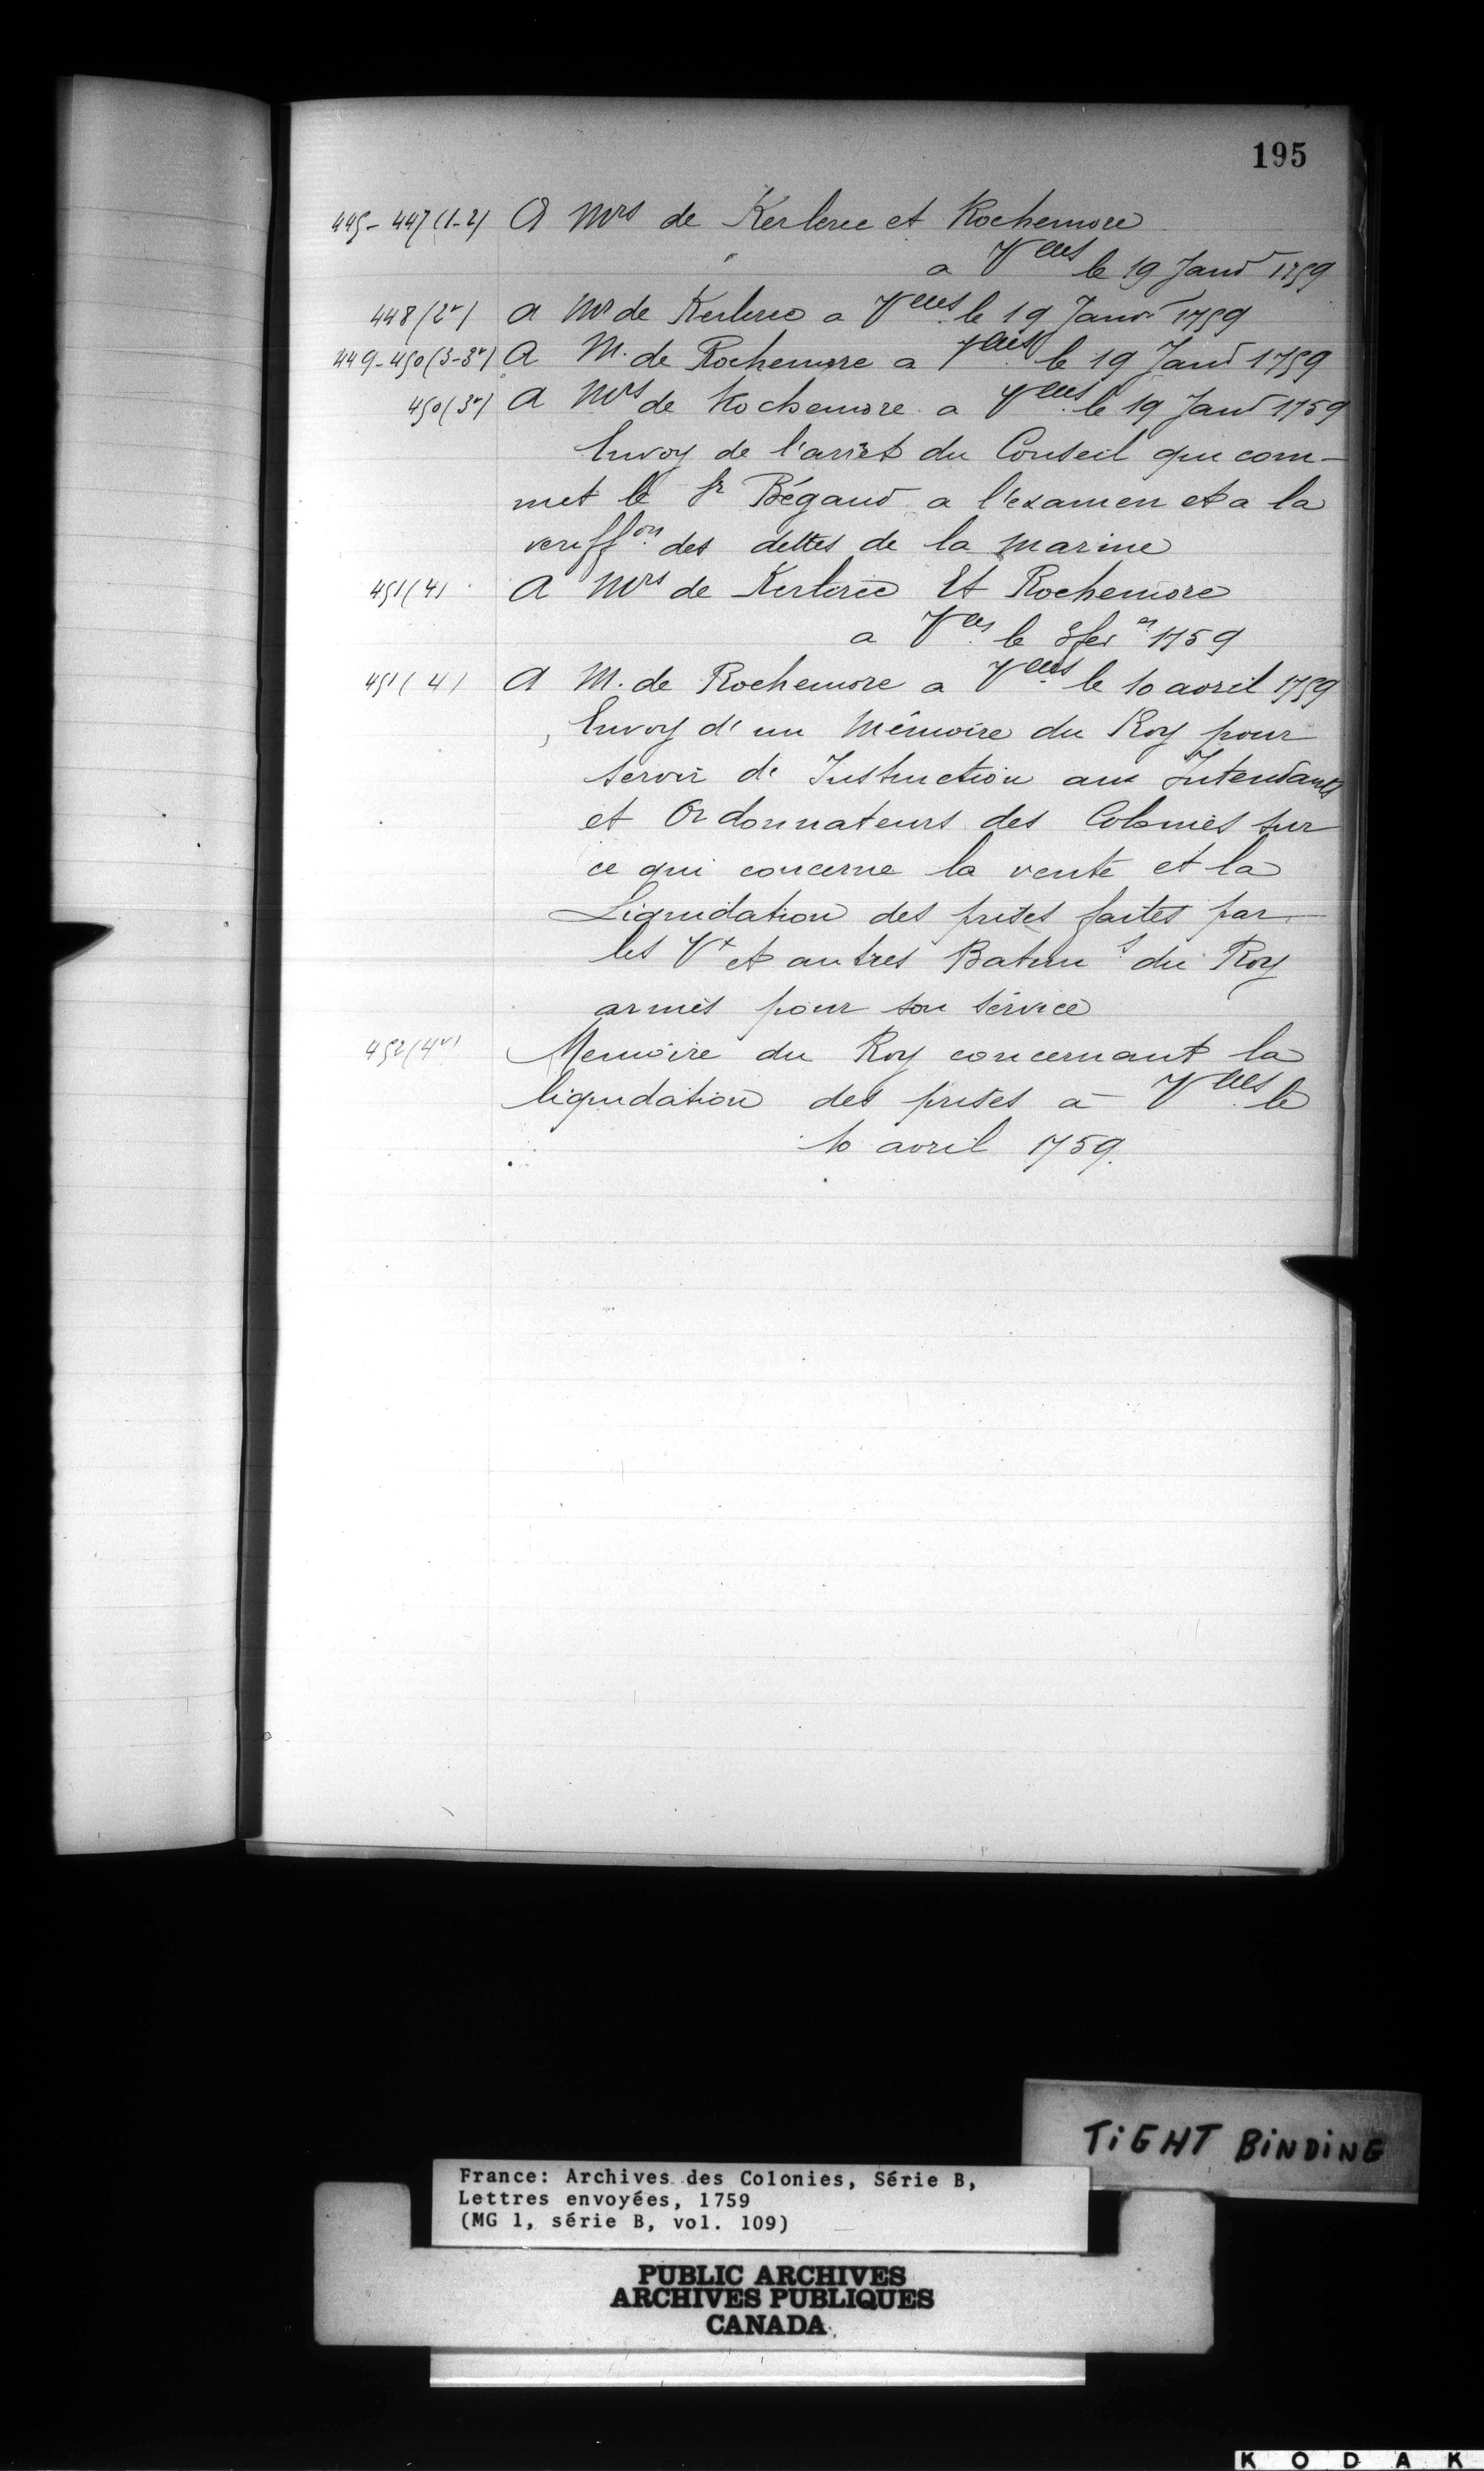 195
445-447 (1-2) A Mrs de Kerlerec et Rochemore
a Vlles le 19 Janv 1759
448 (2v) A Mr de Kerlerec a Vlles le 19 Janvr 1759
449-450 (3-3v) A M. de Rochemore a Vlles le 19 Janv 1759
450 (3v) A Mrs de Rochemore a Vlles le 19 Janv 1759
Envoy de l'arrêt du Conseil qui com-
met le Sr Bégaud a l'examen et a la
veriffon des dettes de la Marine
451 (4) A Mrs de Kerlerec Et Rochemore
a Vles le 3 fer 1759
451 (4) A M. de Rochemore a Vlles le 10 avril 1759
Envoy d'un Mémoire du Roy pour
servir d' Instruction aux Intendants
et Ordonnateurs des Colonies sur
ce qui concerne la vente et la
Liquidation des prises faites par
les Vx et autres Batim s du Roy
armés pour son service
452 (4v) Memoire du Roy concernant la
liquidation des prises a Vlles le
10 avril 1759.
TiGHT BiNDiNG
France: Archives des Colonies, Série B,
Lettres envoyées, 1759
(MG 1, série B, vol. 109)
PUBLIC ARCHIVES
ARCHIVES PUBLIQUES
CANADA
KODAK